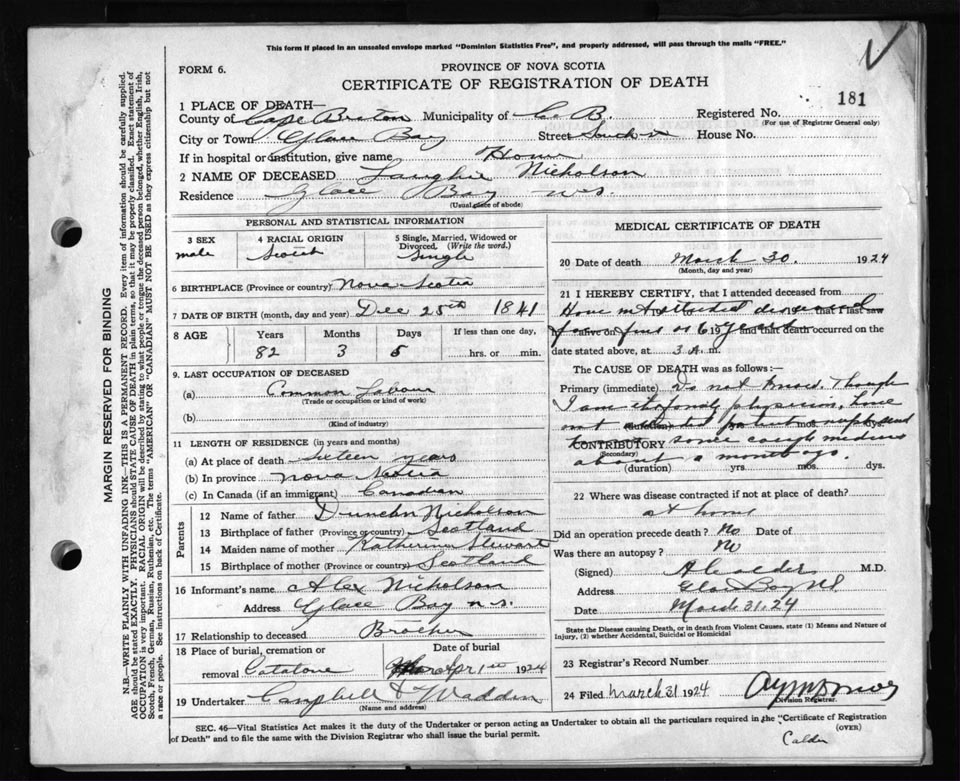 This form if placed in an unsealed envelope marked "Dominion Statistics Free", and properly addressed, will pass through the mails "FREE."
FORM 6.
PROVINCE OF NOVA SCOTIA
CERTIFICATE OF REGISTRATION OF DEATH
181
1 PLACE OF DEATH—
County of Cape Breton Municipality of C. B. Registered No.
(For use of Registrar General only)
City or Town Glace Bay Street House No.
If in hospital or institution, give name Home
2 NAME OF DECEASED Laughie Nicholson
Residence Glace Bay N.S.
(Usual place of abode)
PERSONAL AND STATISTICAL INFORMATION
3 SEX
male
4 RACIAL ORIGIN
Scotch
5 Single, Married, Widowed or Divorced. (Write the word.)
Single
6 BIRTHPLACE (Province or country) Nova Scotia
7 DATE OF BIRTH (month, day and year) Dec 25th 1841
8 AGE Years Months Days If less than one day,
82 3 5 hrs. or min.
9. LAST OCCUPATION OF DECEASED
(a) Common Labour
(Trade or occupation or kind of work)
(b)
(Kind of industry)
11 LENGTH OF RESIDENCE (in years and months)
(a) At place of death Sixteen years
(b) In province Nova Scotia
(c) In Canada (if an immigrant) Canadian
Parents
12 Name of father Nicholson
13 Birthplace of father (Province or country) Scotland
14 Maiden name of mother Katherine Stewart
15 Birthplace of mother (Province or country) Scotland
16 Informant's name Alex Nicholson
Address Glace Bay N.S.
17 Relationship to deceased Brother
18 Place of burial, cremation or removal Catalone
Date of burial
Apr 1st 1924
19 Undertaker Campbell & Madden
(Name and address)
MEDICAL CERTIFICATE OF DEATH
20 Date of death March 30. 1924
(Month, day and year)
21 I HEREBY CERTIFY, that I attended deceased from
Have not attended deceased that I last saw
alive on 19 and that death occurred on the
date stated above, at 3 A. m.
The CAUSE OF DEATH was as follows:—
Primary (immediate) Do not know. Though
I am family physician, have
not attended patient
(duration) yrs. mos. dys.
CONTRIBUTORY some cough medicine
(Secondary)
about a month ago.
(duration) yrs. mos. dys.
22 Where was disease contracted if not at place of death?
at home
Did an operation precede death? No Date of
Was there an autopsy? No
(Signed) A Calder M.D.
Address Glace Bay N.S.
Date March 31. 24
State the Disease causing Death, or in death from Violent Causes, state (1) Means and Nature of Injury, (2) whether Accidental, Suicidal or Homicidal
23 Registrar's Record Number
24 Filed March 31 1924
Division Registrar.
SEC. 46—Vital Statistics Act makes it the duty of the Undertaker or person acting as Undertaker to obtain all the particulars required in the "Certificate of Registration
of Death" and to file the same with the Division Registrar who shall issue the burial permit.
(OVER)
Calder
MARGIN RESERVED FOR BINDING
N.B.—WRITE PLAINLY WITH UNFADING INK—THIS IS A PERMANENT RECORD. Every item of information should be carefully supplied.
AGE should be stated EXACTLY. PHYSICIANS should STATE CAUSE OF DEATH in plain terms, so that it may be properly classified. Exact statement of
OCCUPATION is very important. RACIAL ORIGIN will be described by stating to what people or tongue the deceased person belonged, whether English, Irish,
Scotch, French, German, Russian, Ruthenian, etc. The terms "AMERICAN" OR "CANADIAN" MUST NOT BE USED as they express citizenship but not
a race or people. See instructions on back of Certificate.